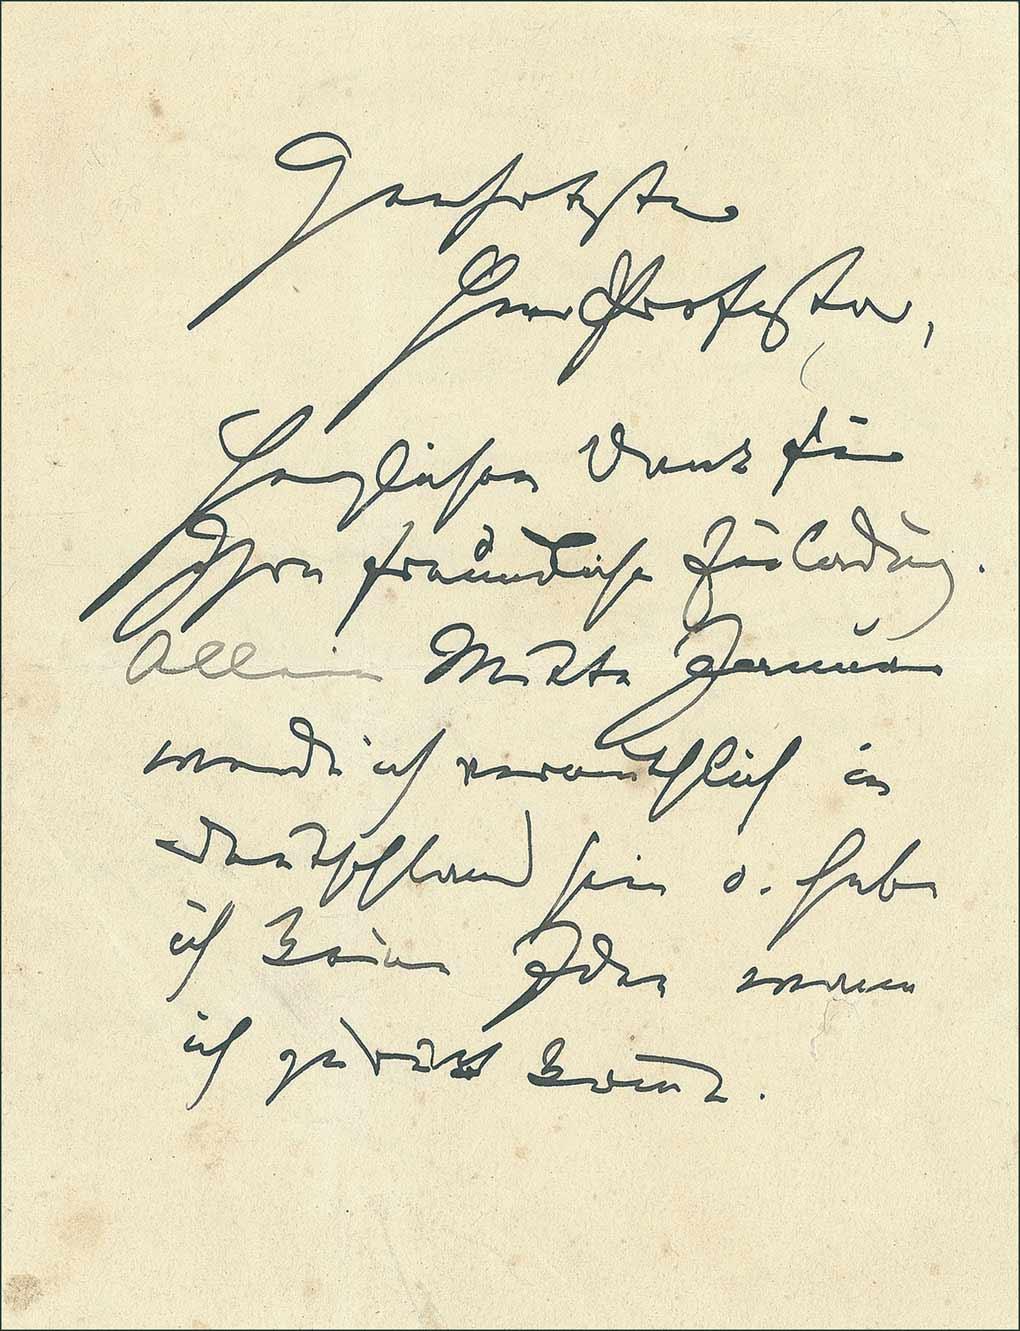 Geehrtester
Herr Professor,
Herzlichen Dank für
Ihre freundliche Einladung.
Allein Mitte Januar
werde ich vermuthlich in
Deutschland sein u. habe
ich keine Idee wann
ich zurück komme.